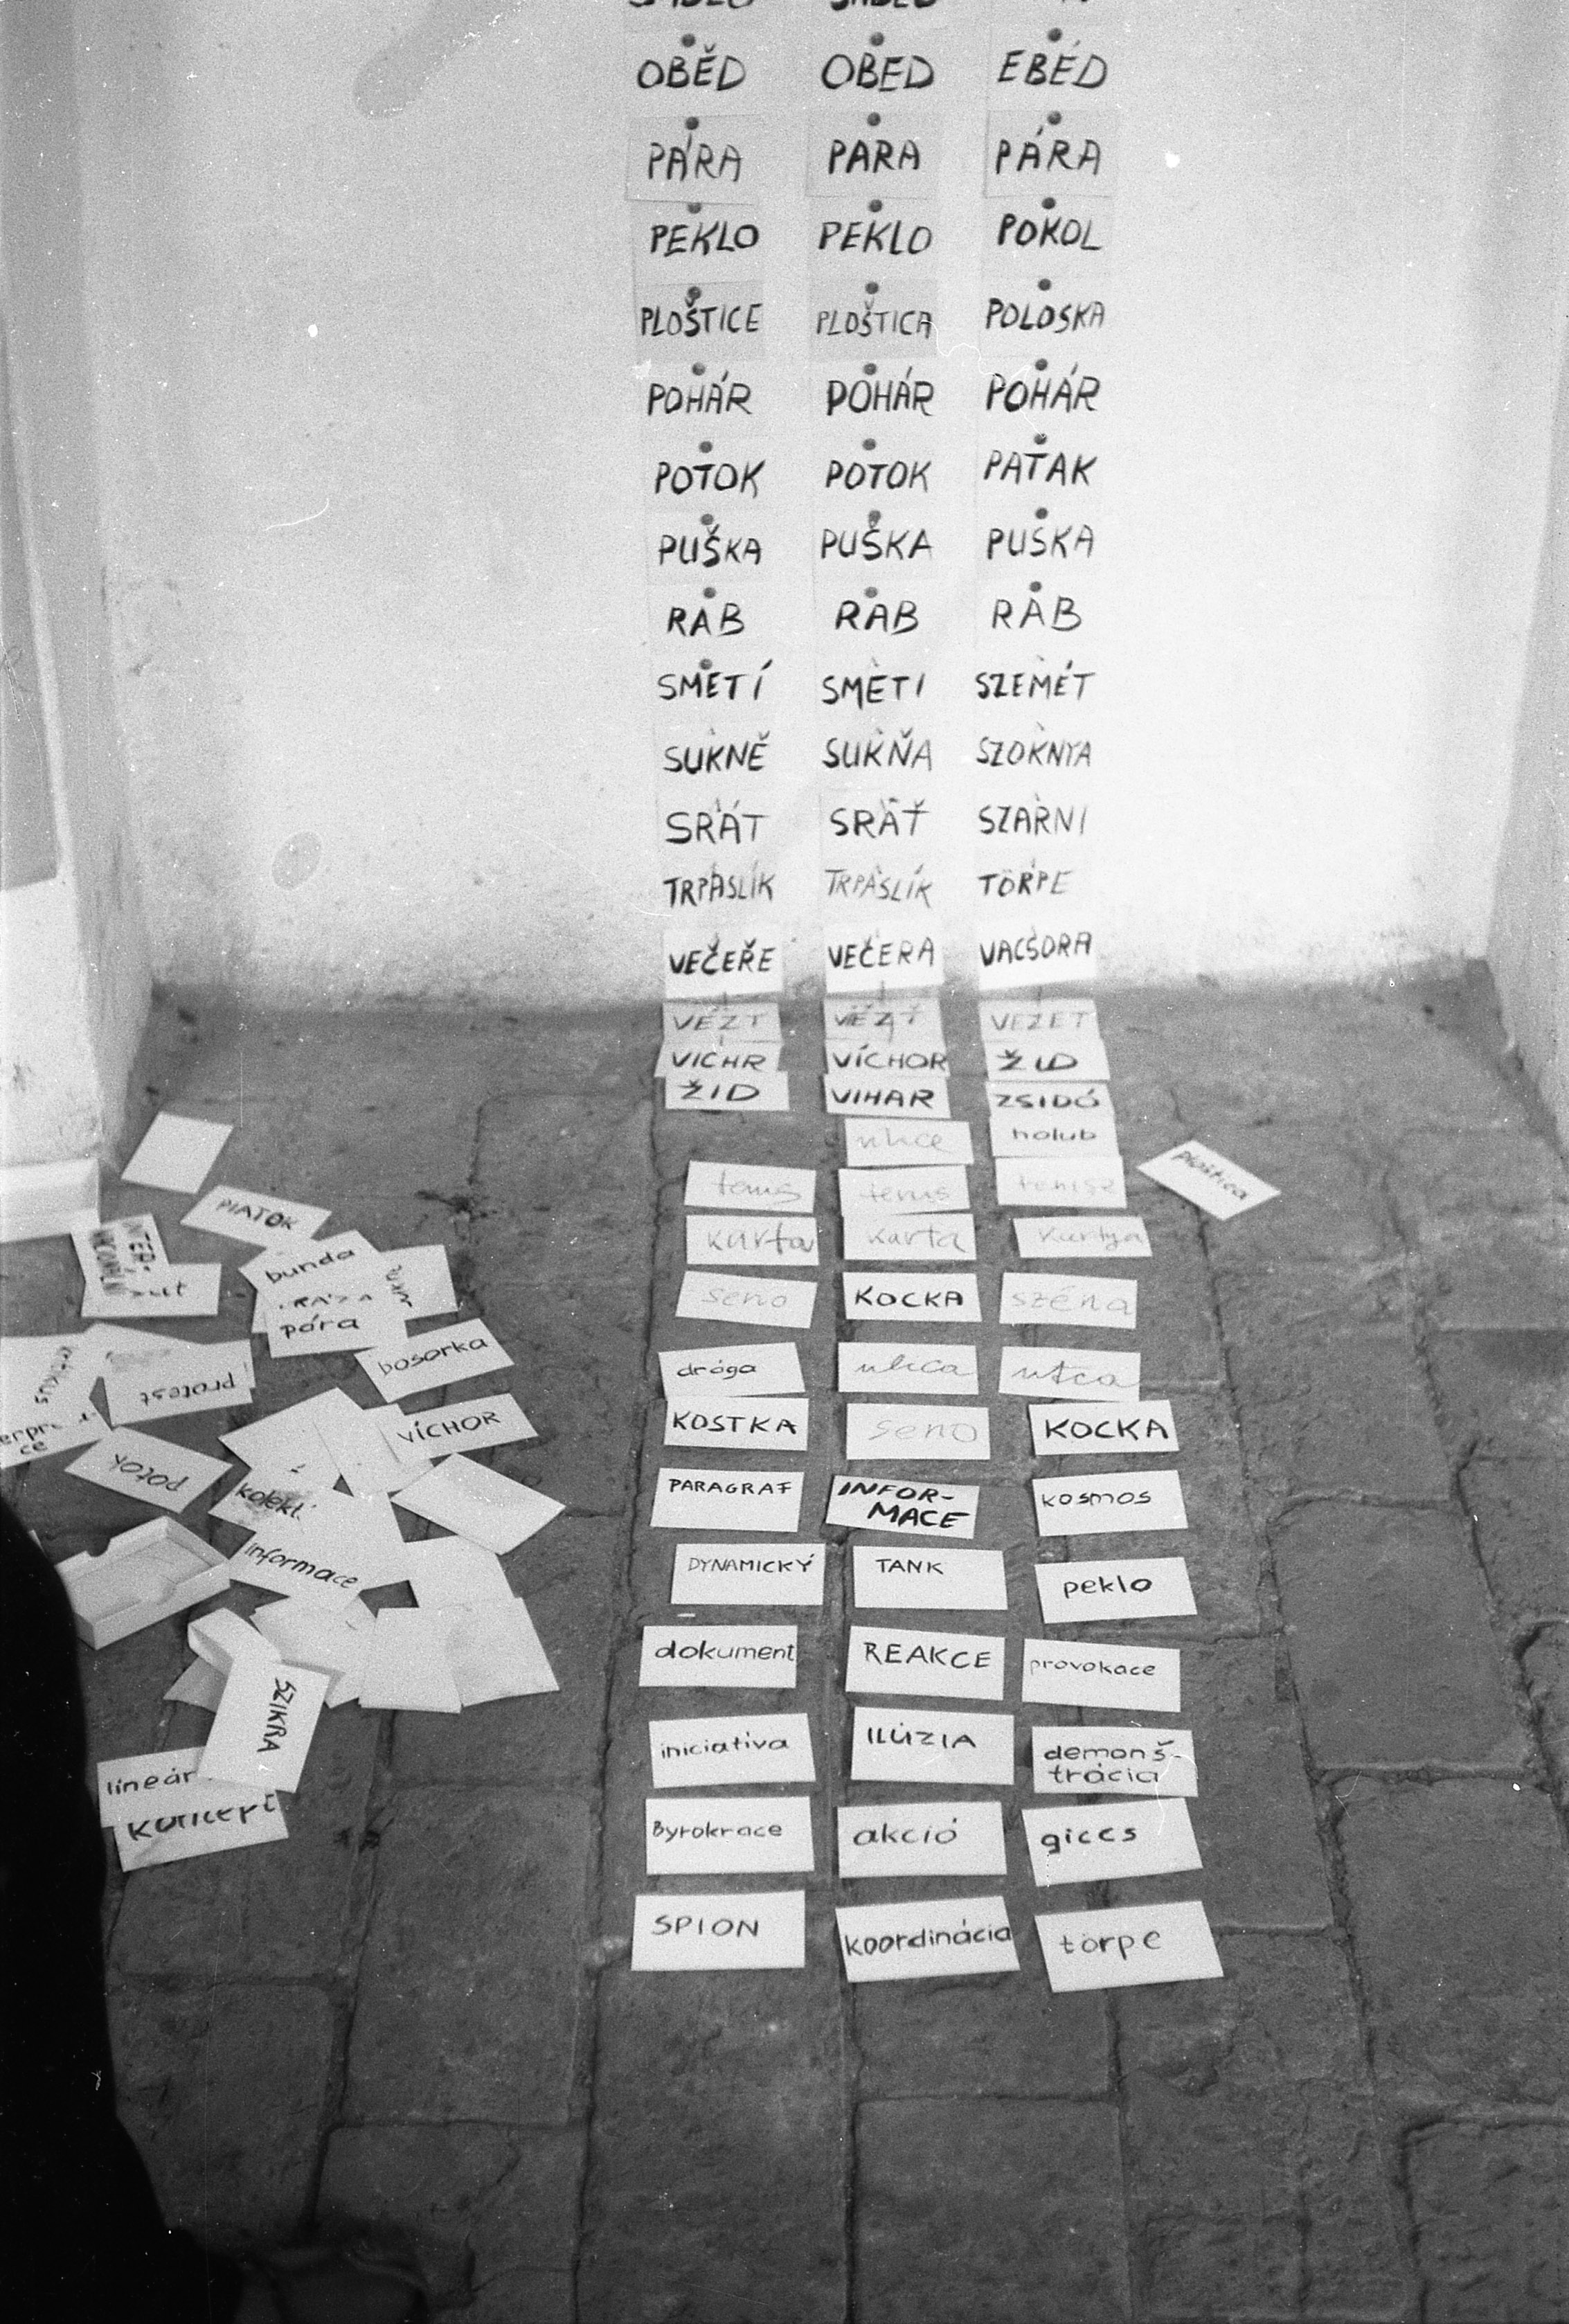 OBĚD OBED EBÉD
PÁRA PARA PÁRA
PEKLO PEKLO POKOL
PLOŠTICE PLOŠTICA POLOSKA
POHÁR POHÁR POHÁR
POTOK POTOK PATAK
PUŠKA PUŠKA PUSKA
RAB RAB RAB
SMETÍ SMETI SZEMÉT
SUKNĚ SUKŇA SZOKNYA
SRÁT SRAŤ SZARNI
TRPASLÍK TRPASLÍK TÖRPE
VEČEŘE VEČERA VACSORA
VÉZT VIEZŤ VEZET
VICHR VÍCHOR ŽID
ŽID VIHAR ZSIDÓ
ulice holub
ploštica
tenis tenis tenisz
karta karta kártya
seno KOCKA széna
dróga ulica utca
KOSTKA seno KOCKA
PARAGRAF INFOR-
MACE kosmos
DYNAMICKÝ TANK peklo
dokument REAKCE provokace
iniciatíva ILÚZIA demonš-
trácia
Byrokrace akció giccs
SPION koordinácia törpe
PIATOK
bunda
pára
bosorka
protest
VÍCHOR
potok
informace
SZIKRA
lineár
koncept